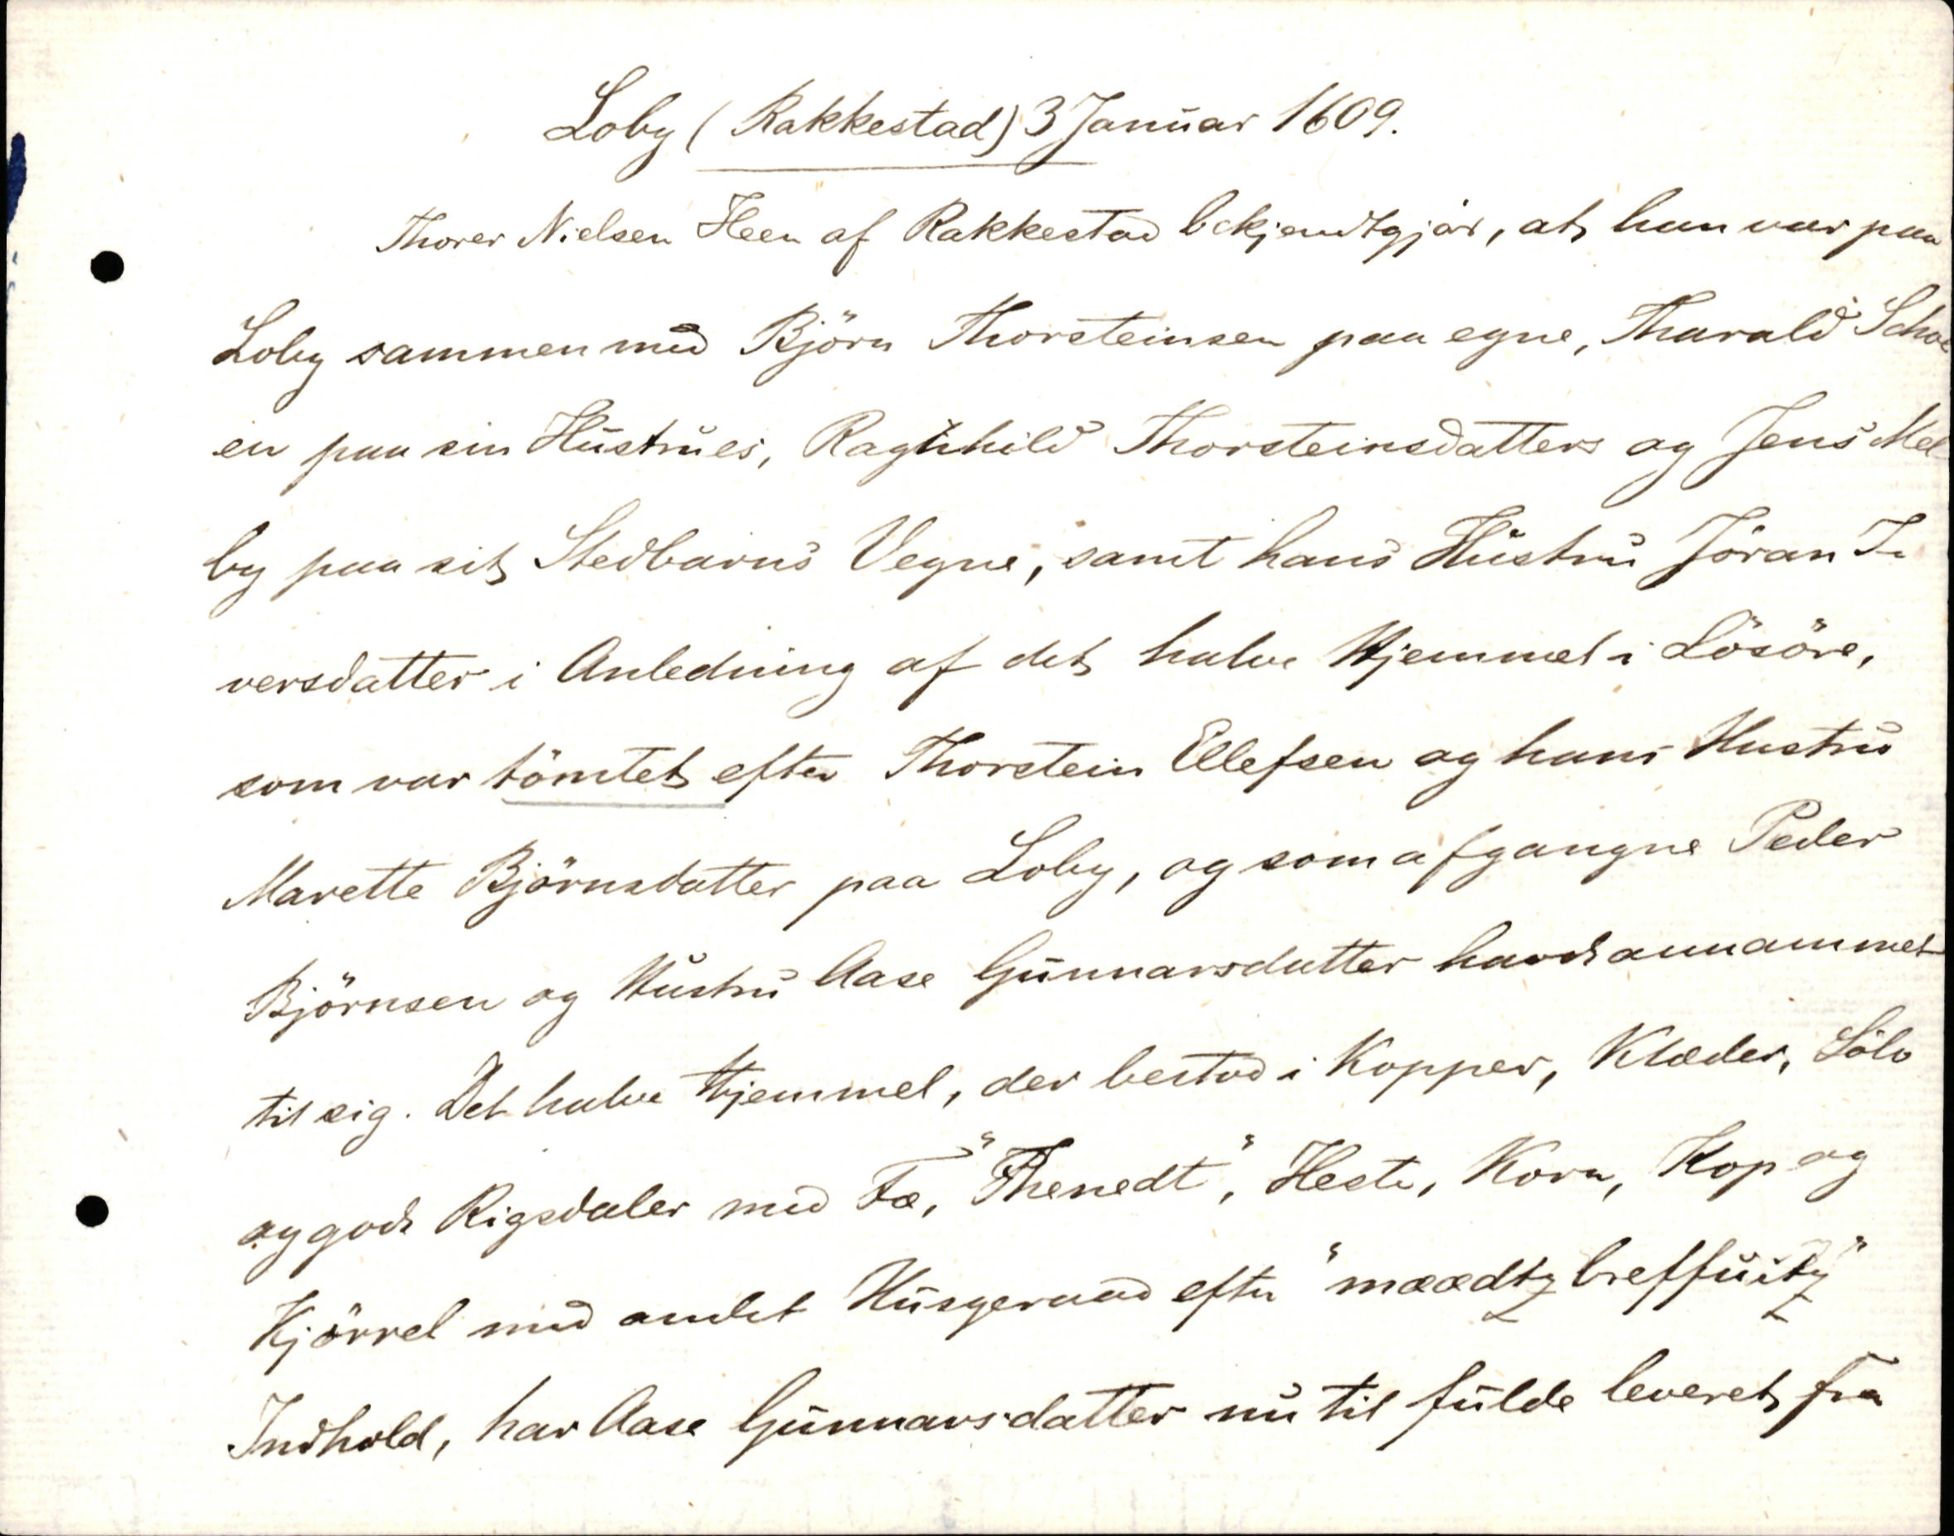 Loby (Rakkestad) 3 Januar 1609.
Thorer Nielsen Heen af Rakkestad bekjendtgjör, at han var paa
Loby sammen med Björn Thorsteinsen paa egne, Tharald Schou
en paa sin Hustrues, Ragnhild Thorsteinsdatters og Jens Mel
by paa sit Stedbarns Vegne, samt hans Hustru Jöran I
versdatter i Anledning af det halve Hjemmel i Lösöre,
som var tömtet efter Thorstein Ellefsen og hans Hustru
Marette Björnsdatter paa Loby, og som afgangne Peder
Björnsen og Hustru Aase Gunnarsdatter havde annammet
til sig. Det halve Hjemmel, der bestod i Kopper, Klæder, Sölv
og gode Rigsdaler med Fæ, "Thenedt", Heste, Korn, Kop og
Kjörrel med andet Husgeraad efter "mæædtz breffuitz"
Indhold, har Aase Gunnarsdatter nu til fulde leveret fra